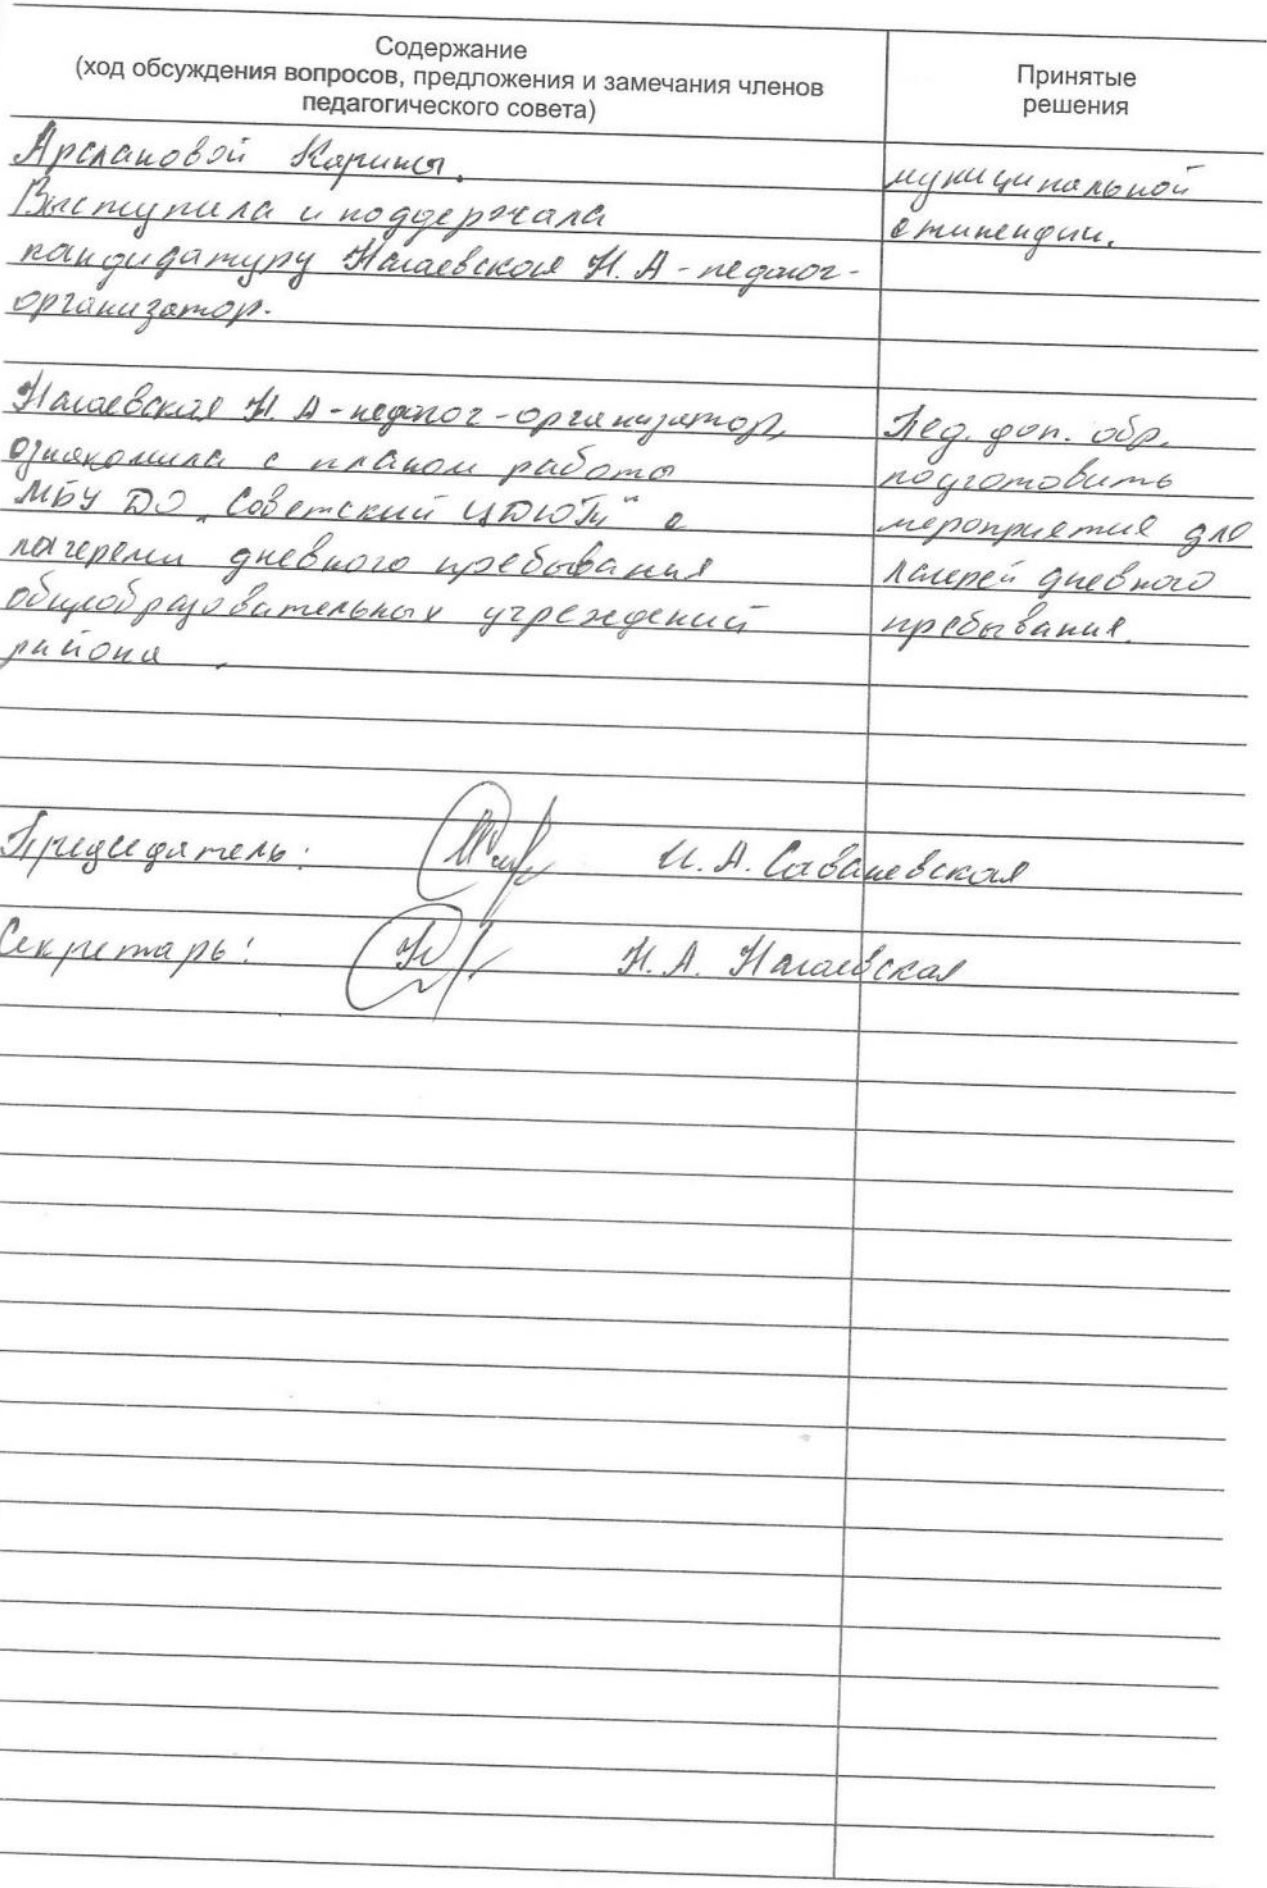 Содержание
(ход обсуждения вопросов, предложения и замечания членов
педагогического совета)
Принятые
решения
Арслановой Карины.
Выступила и поддержала
кандидатуру Нагаевская Н. А - педагог-
организатор.
муниципальной
стипендии.
Нагаевская Н. А - педагог - организатор,
ознакомила с планом работы
МБУ ДО „Советский ЦДЮТи" с
лагерями дневного пребывания
общеобразовательных учреждений
района.
Пед. доп. обр.
подготовить
мероприятия для
лагерей дневного
пребывания.
Председатель: И. А. Саваневская
Секретарь: Н. А. Нагаевская